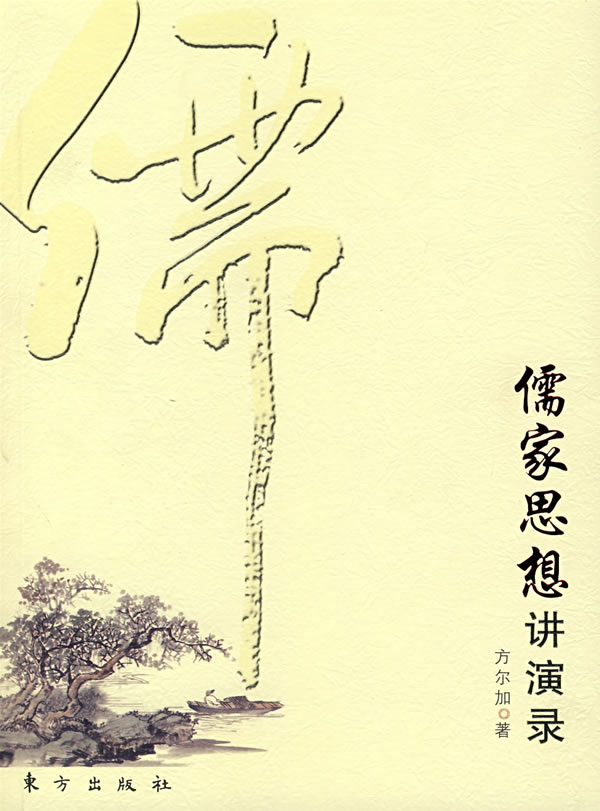 儒
儒家思想讲演录
方尔加 著
東方出版社